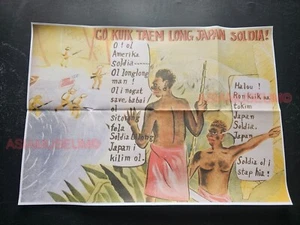 GO KUIK TAEM LONG JAPAN SOLDIA!
O! ol
Amerika
soldia
Ol longlong
man!
Ol i no gat
save,
sitong
fela
Soldia bilong
Japan i
kilim ol.
Halou!
Ron kuik na
tokim
Japan
Soldia.
Japan
Soldia ol i
stap hia!